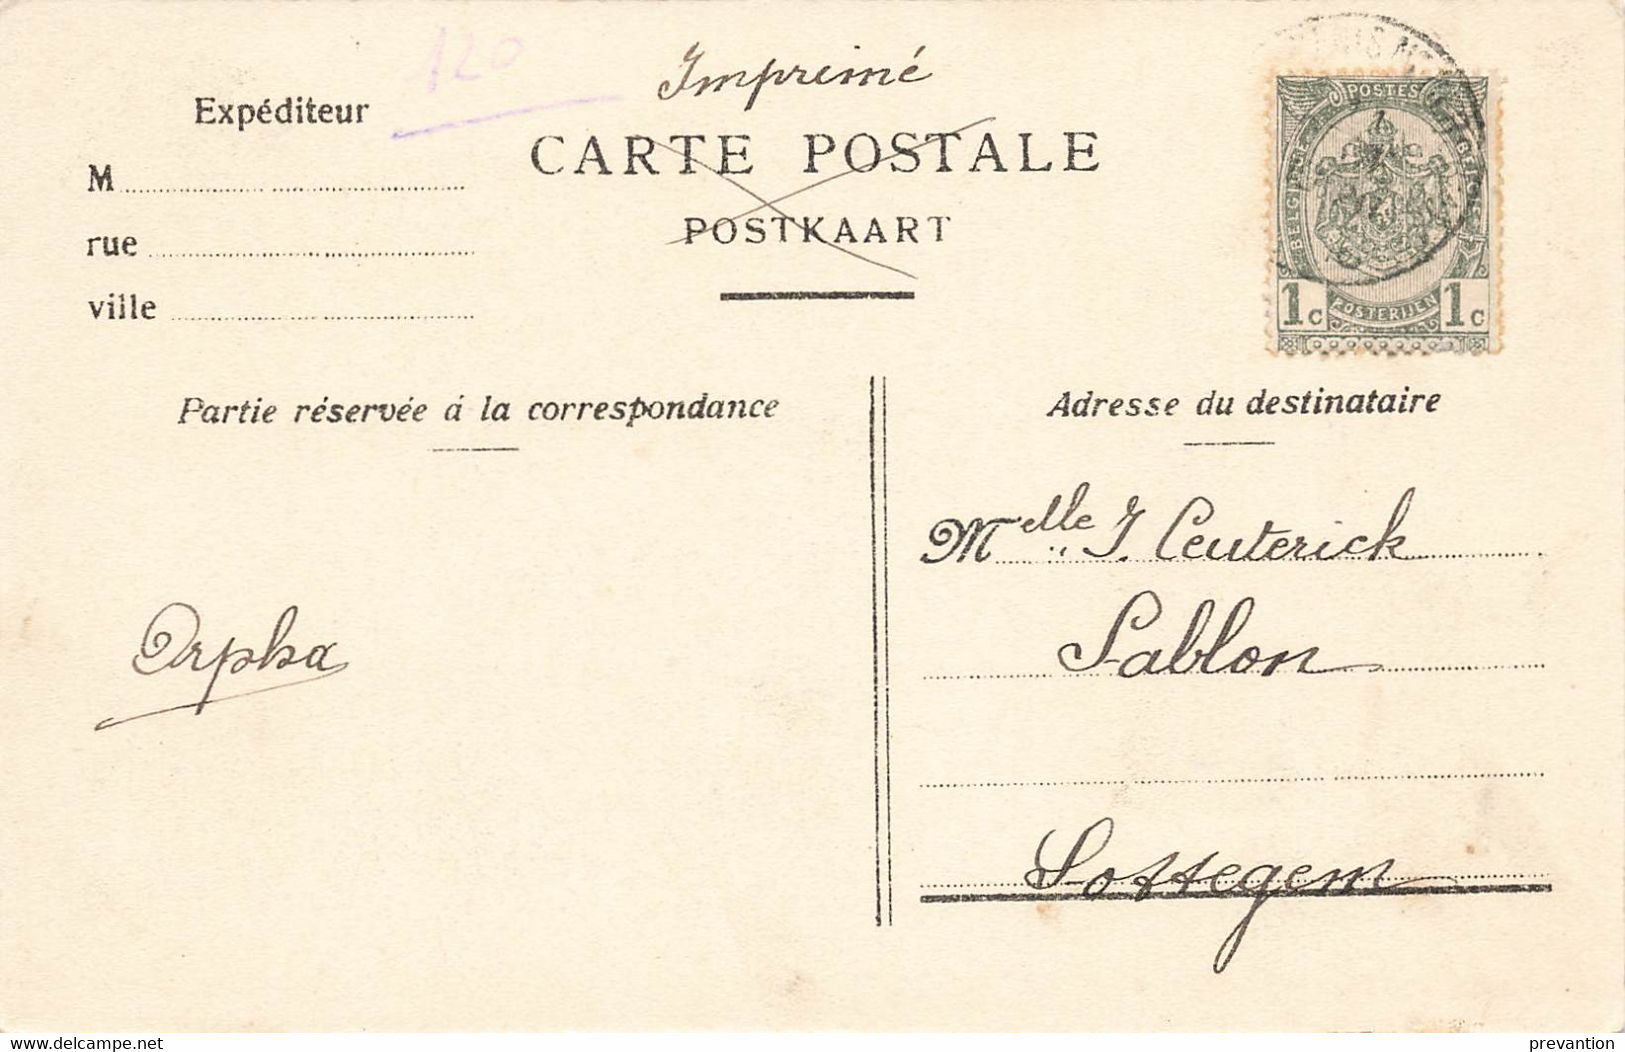 120
Imprimé
Expéditeur
CARTE POSTALE
M
POSTKAART
rue
ville
POSTES
BELGIQUE
POSTERIJEN
1c 1c
Partie réservée á la correspondance
Adresse du destinataire
Melle J. Ceuterick
Sablon
Orpha
Sottegem
https://www.delcampe.net
prevantion